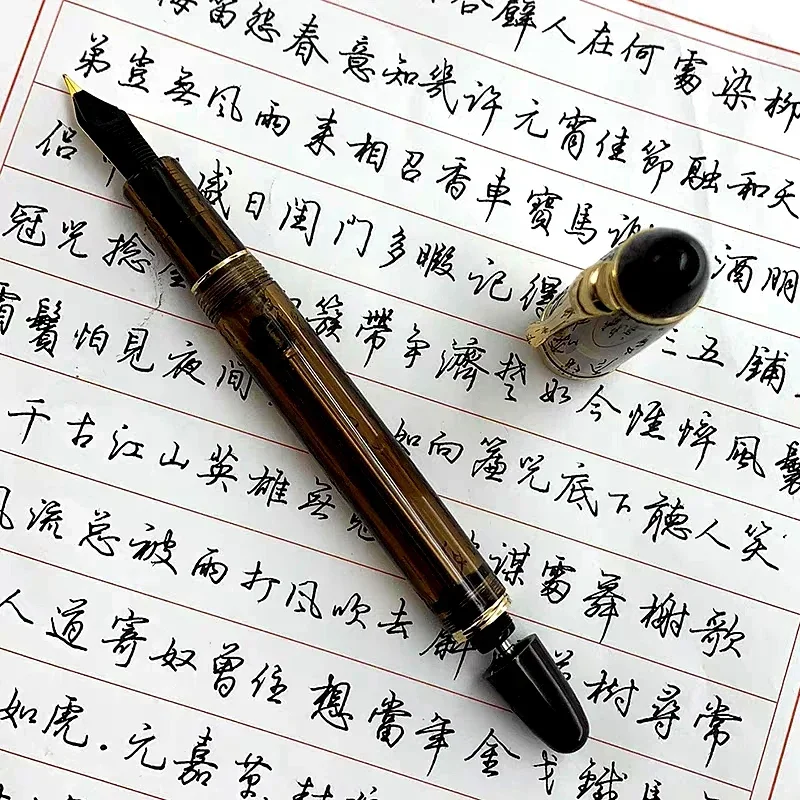 合璧人在何處染柳
梅笛怨春意知幾許元宵佳節融和天
第豈無风雨来相召香車寶馬 酒朋
侶 盛日閨門多暇記得 三五鋪
冠兒捻金 簇帶争濟楚如今憔悴風鬟
霜鬢怕見夜間 如向簾兒底下聽人笑
千古江山英雄無覓 謀處舞榭歌
风流总被雨打风吹去斜 草樹尋常
人道寄奴曾住想當年金戈鐵馬
如虎.元嘉草封